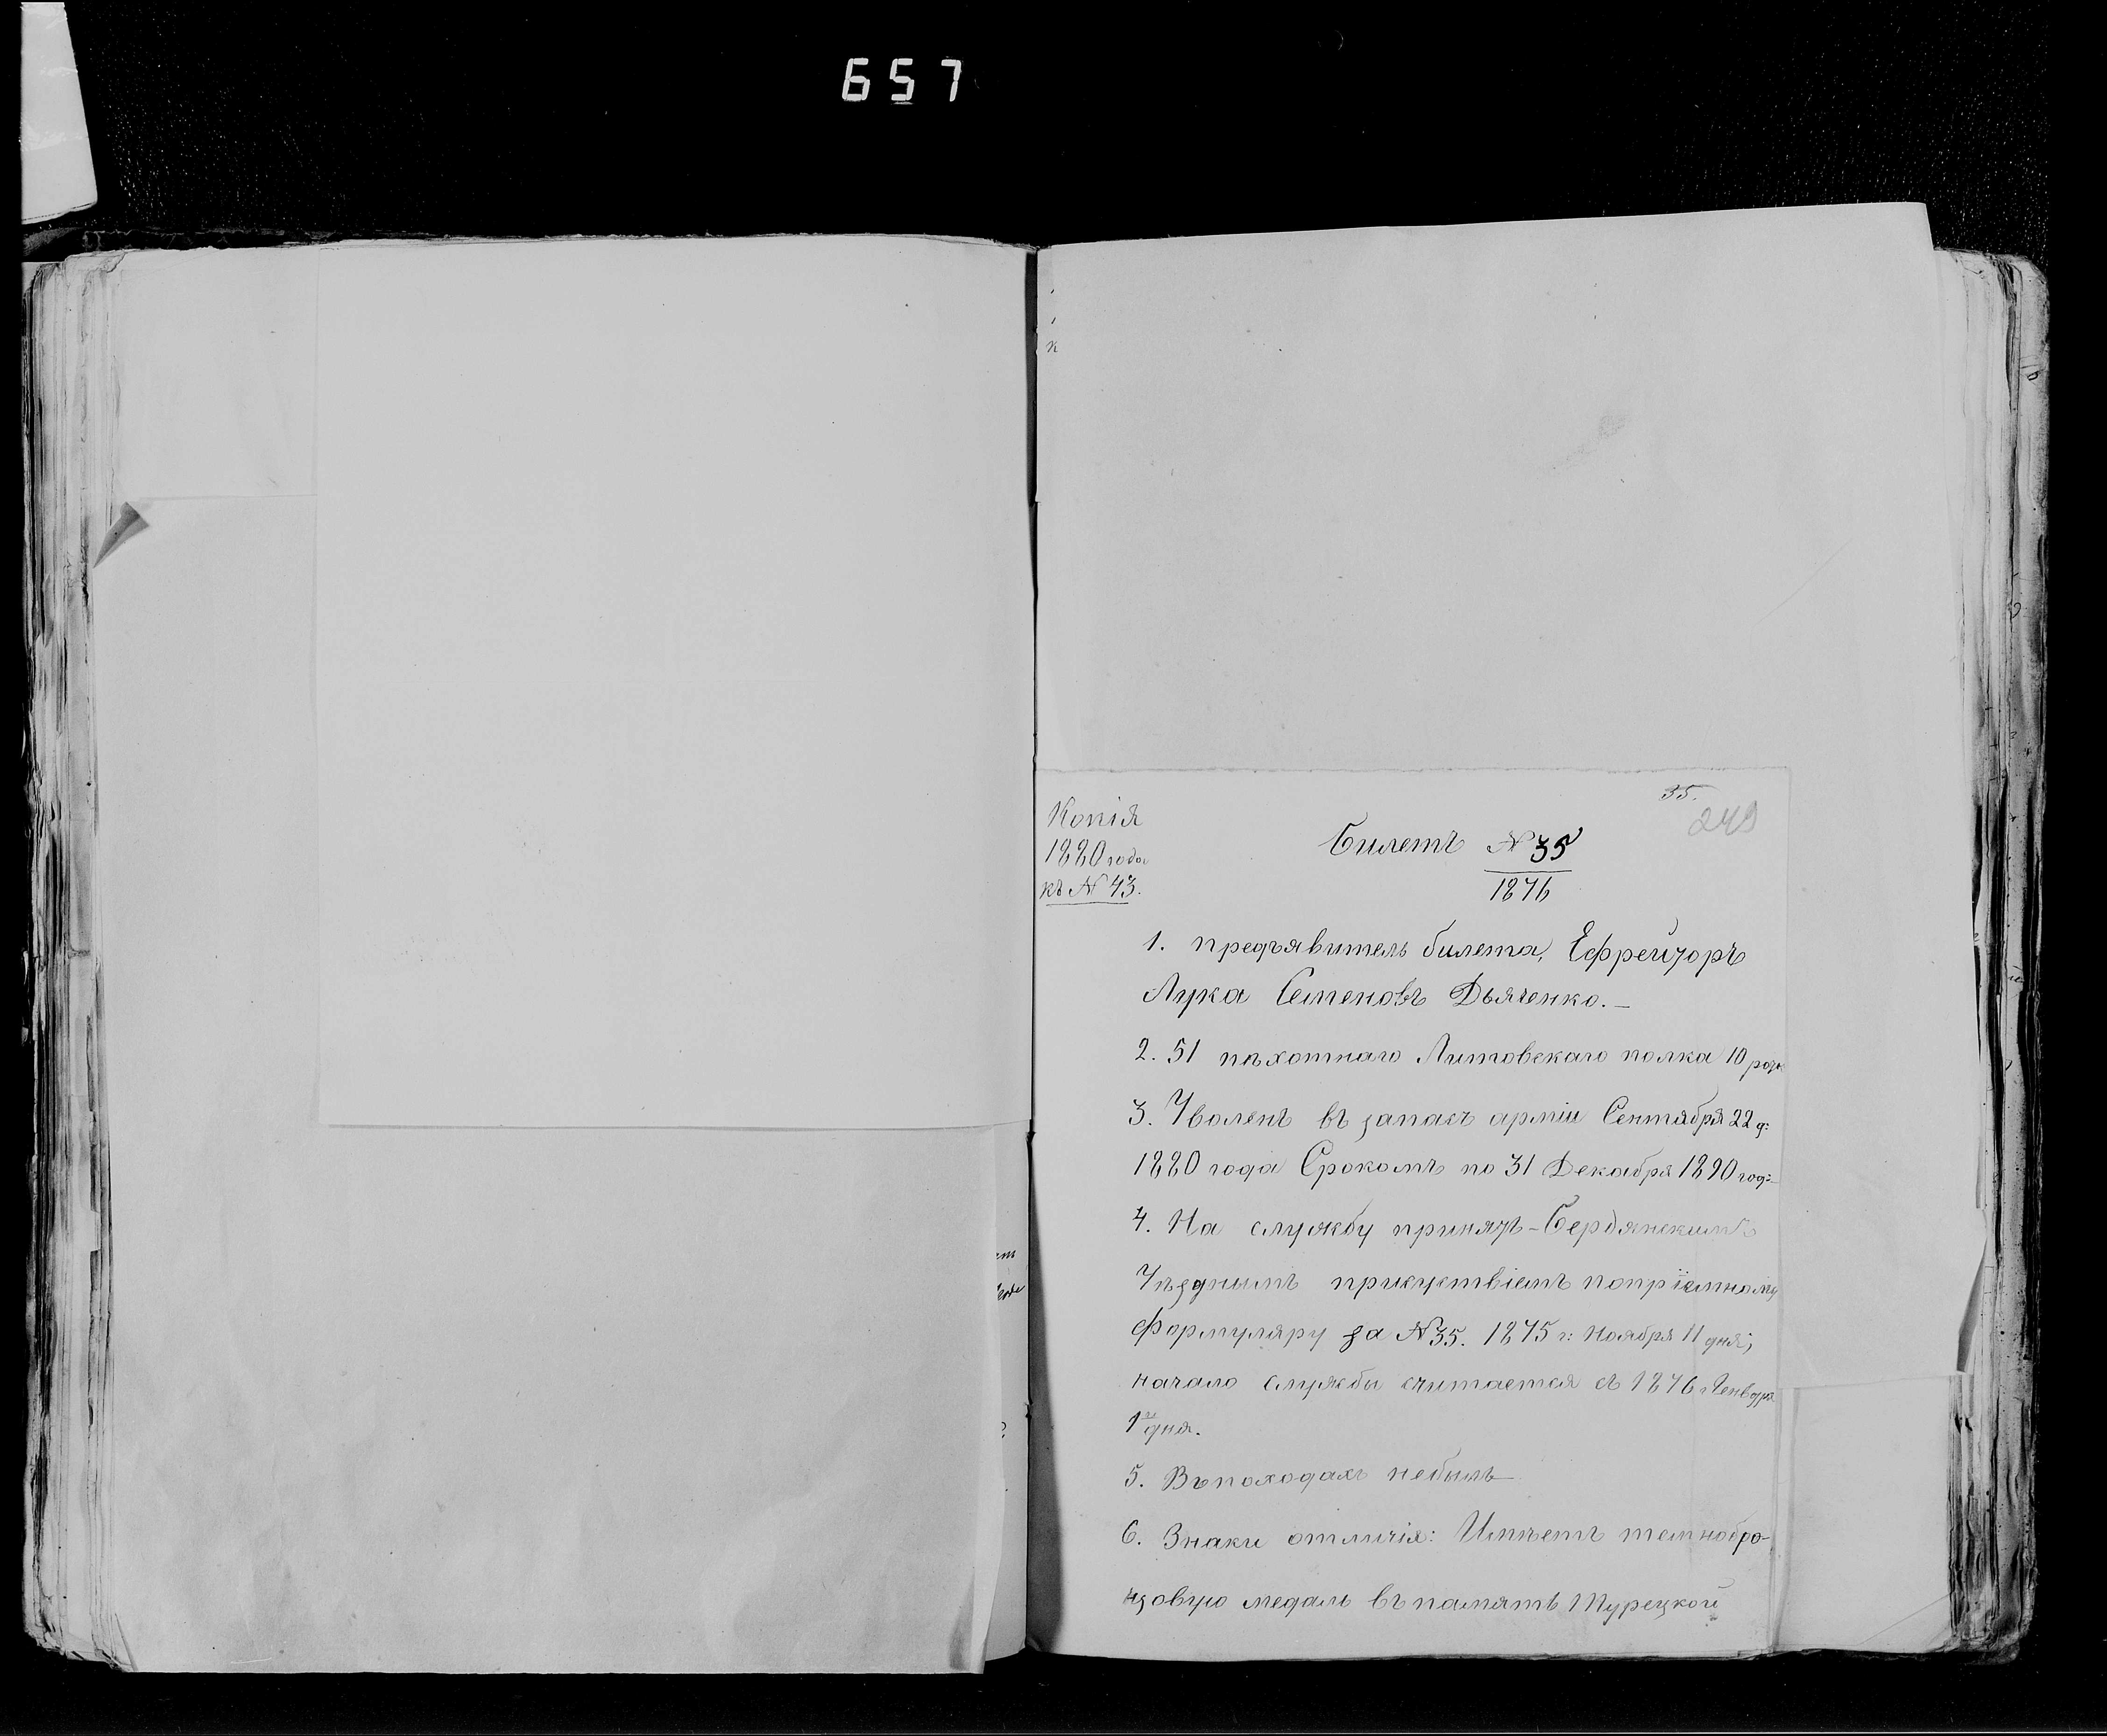 657
35.
249
Копія
1880 года
къ № 43.
Билетъ № 35
1876
1. предъявитель билета, Ефрейторъ
Лука Семеновъ Дьяченко.—
2. 51 пѣхотнаго Литовскаго полка 10 роты
3. Уволенъ въ запасъ арміи Сентября 22 д:
1880 года Срокомъ по 31 Декабря 1890 год:
4. На службу принятъ - Бердянскимъ
Уѣзднымъ присуствіемъ попріемному
формуляру за № 35. 1875 г: Ноября 11 дня;
начало службы считается съ 1876 г Генваря
1го дня.
5. Въпоходахъ небылъ
6. Знаки отличія: Имѣетъ темнобро-
нзовую медаль въпамять Турецкой